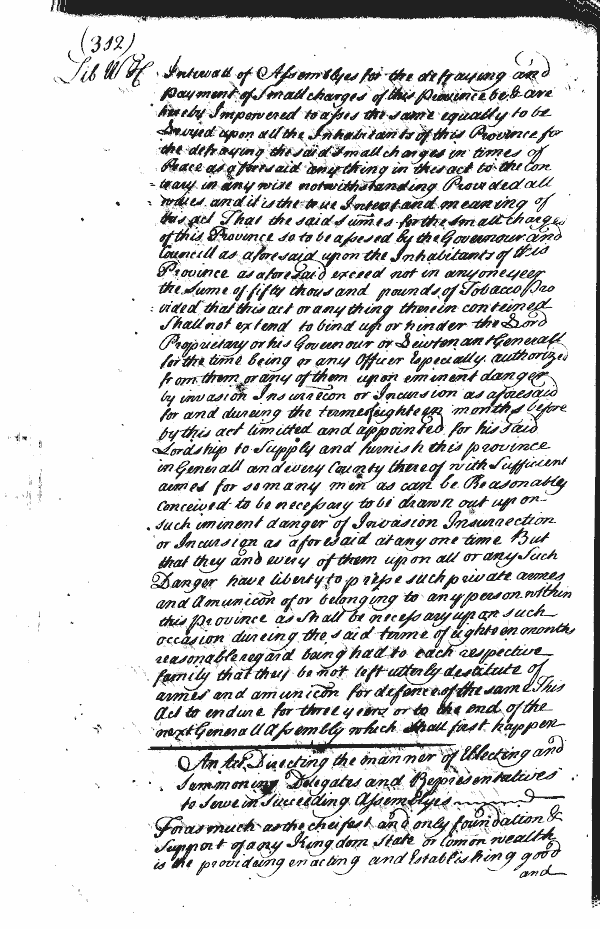 (312)
Lib W H
Intervall of Assemblyes for the defraying and
payment of Small charges of this Province be & are
hereby Impowered to asses the same equally to be
Levyed upon all the Inhabitants of this Province for
the defraying the said small charges in times of
Peace as aforesaid any thing in this act to the Con
=trary in any wise notwithstanding Provided all
=wayes and it is the true Intent and meaning of
this act That the said sumes for the small charges
of this Province so to be assesed by the Governour and
Councill as aforesaid upon the Inhabitants of this
Province as aforesaid exceed not in any one yeer
the sume of fifty thousand pounds of Tobacco Pro
vided that this act or any thing therein conteined
Shall not extend to bind up or hinder the Lord
Proprietary or his Govenour or Lieutenant Generall
for the time being or any Officer Especially authorized
from them or any of them upon eminent danger
by invasion Insurrecon or Incursion as aforesaid
for and dureing the terme eighteen months before
by this act limitted and appointed for his said
Lordship to Supply and furnish this province
in Generall and every County thereof with Sufficient
armes for so many men as can be Reasonably
Conceived to be necessary to be drawn out upon
such iminent danger of Invasion Insurrection
or Incursion as aforesaid at any one time But
that they and every of them upon all or any Such
Danger have liberty to presse such private armes
and Amunicon of or belonging to any person within
this province as Shall be necessary upon such
occasion dureing the said terme of eighteen months
reasonable regard being had to each respective
family that they be not left utterly destitute of
armes and amunicon for defence of the same This
Act to endure for three years or to the end of the
next Generall Assembly which Shall first happen
An Act Directing the manner of Electing and
Summoning Delegates and Representatives
to Serve in Succeeding Assemblyes
Forasmuch as the cheifest and only foundation &
Support of any Kingdom State or Comon wealth
is the provideing enacting and Establishing good
and